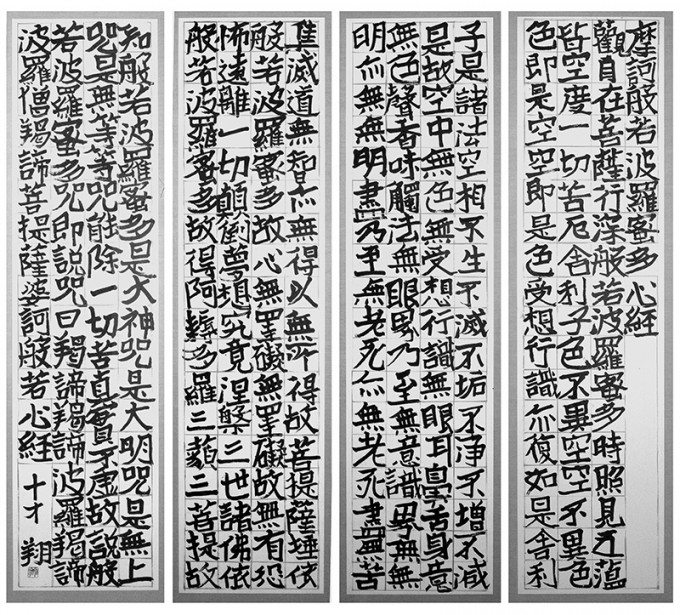 摩訶般若波羅蜜多心経
觀自在菩薩行深般若波羅蜜多時照見五蘊
皆空度一切苦厄舎利子色不異空空不異色
色即是空空即是色受想行識亦復如是舎利
子是諸法空相不生不滅不垢不浄不增不減
是故空中無色無受想行識無眼耳鼻舌身意
無色聲香味觸法無眼界乃至無意識界無無
明亦無無明盡乃至無老死亦無老死盡無苦
集滅道無智亦無得以無所得故菩提薩埵依
般若波羅蜜多故心無罣礙無罣礙故無有恐
怖遠離一切顛倒夢想究竟涅槃三世諸佛依
般若波羅蜜多故得阿耨多羅三藐三菩提故
知般若波羅蜜多是大神咒是大明咒是無上
咒是無等等咒能除一切苦真實不虚故説般
若波羅蜜多咒即説咒曰羯諦羯諦波羅羯諦
波羅僧羯諦菩提薩婆訶般若心経 十才 翔